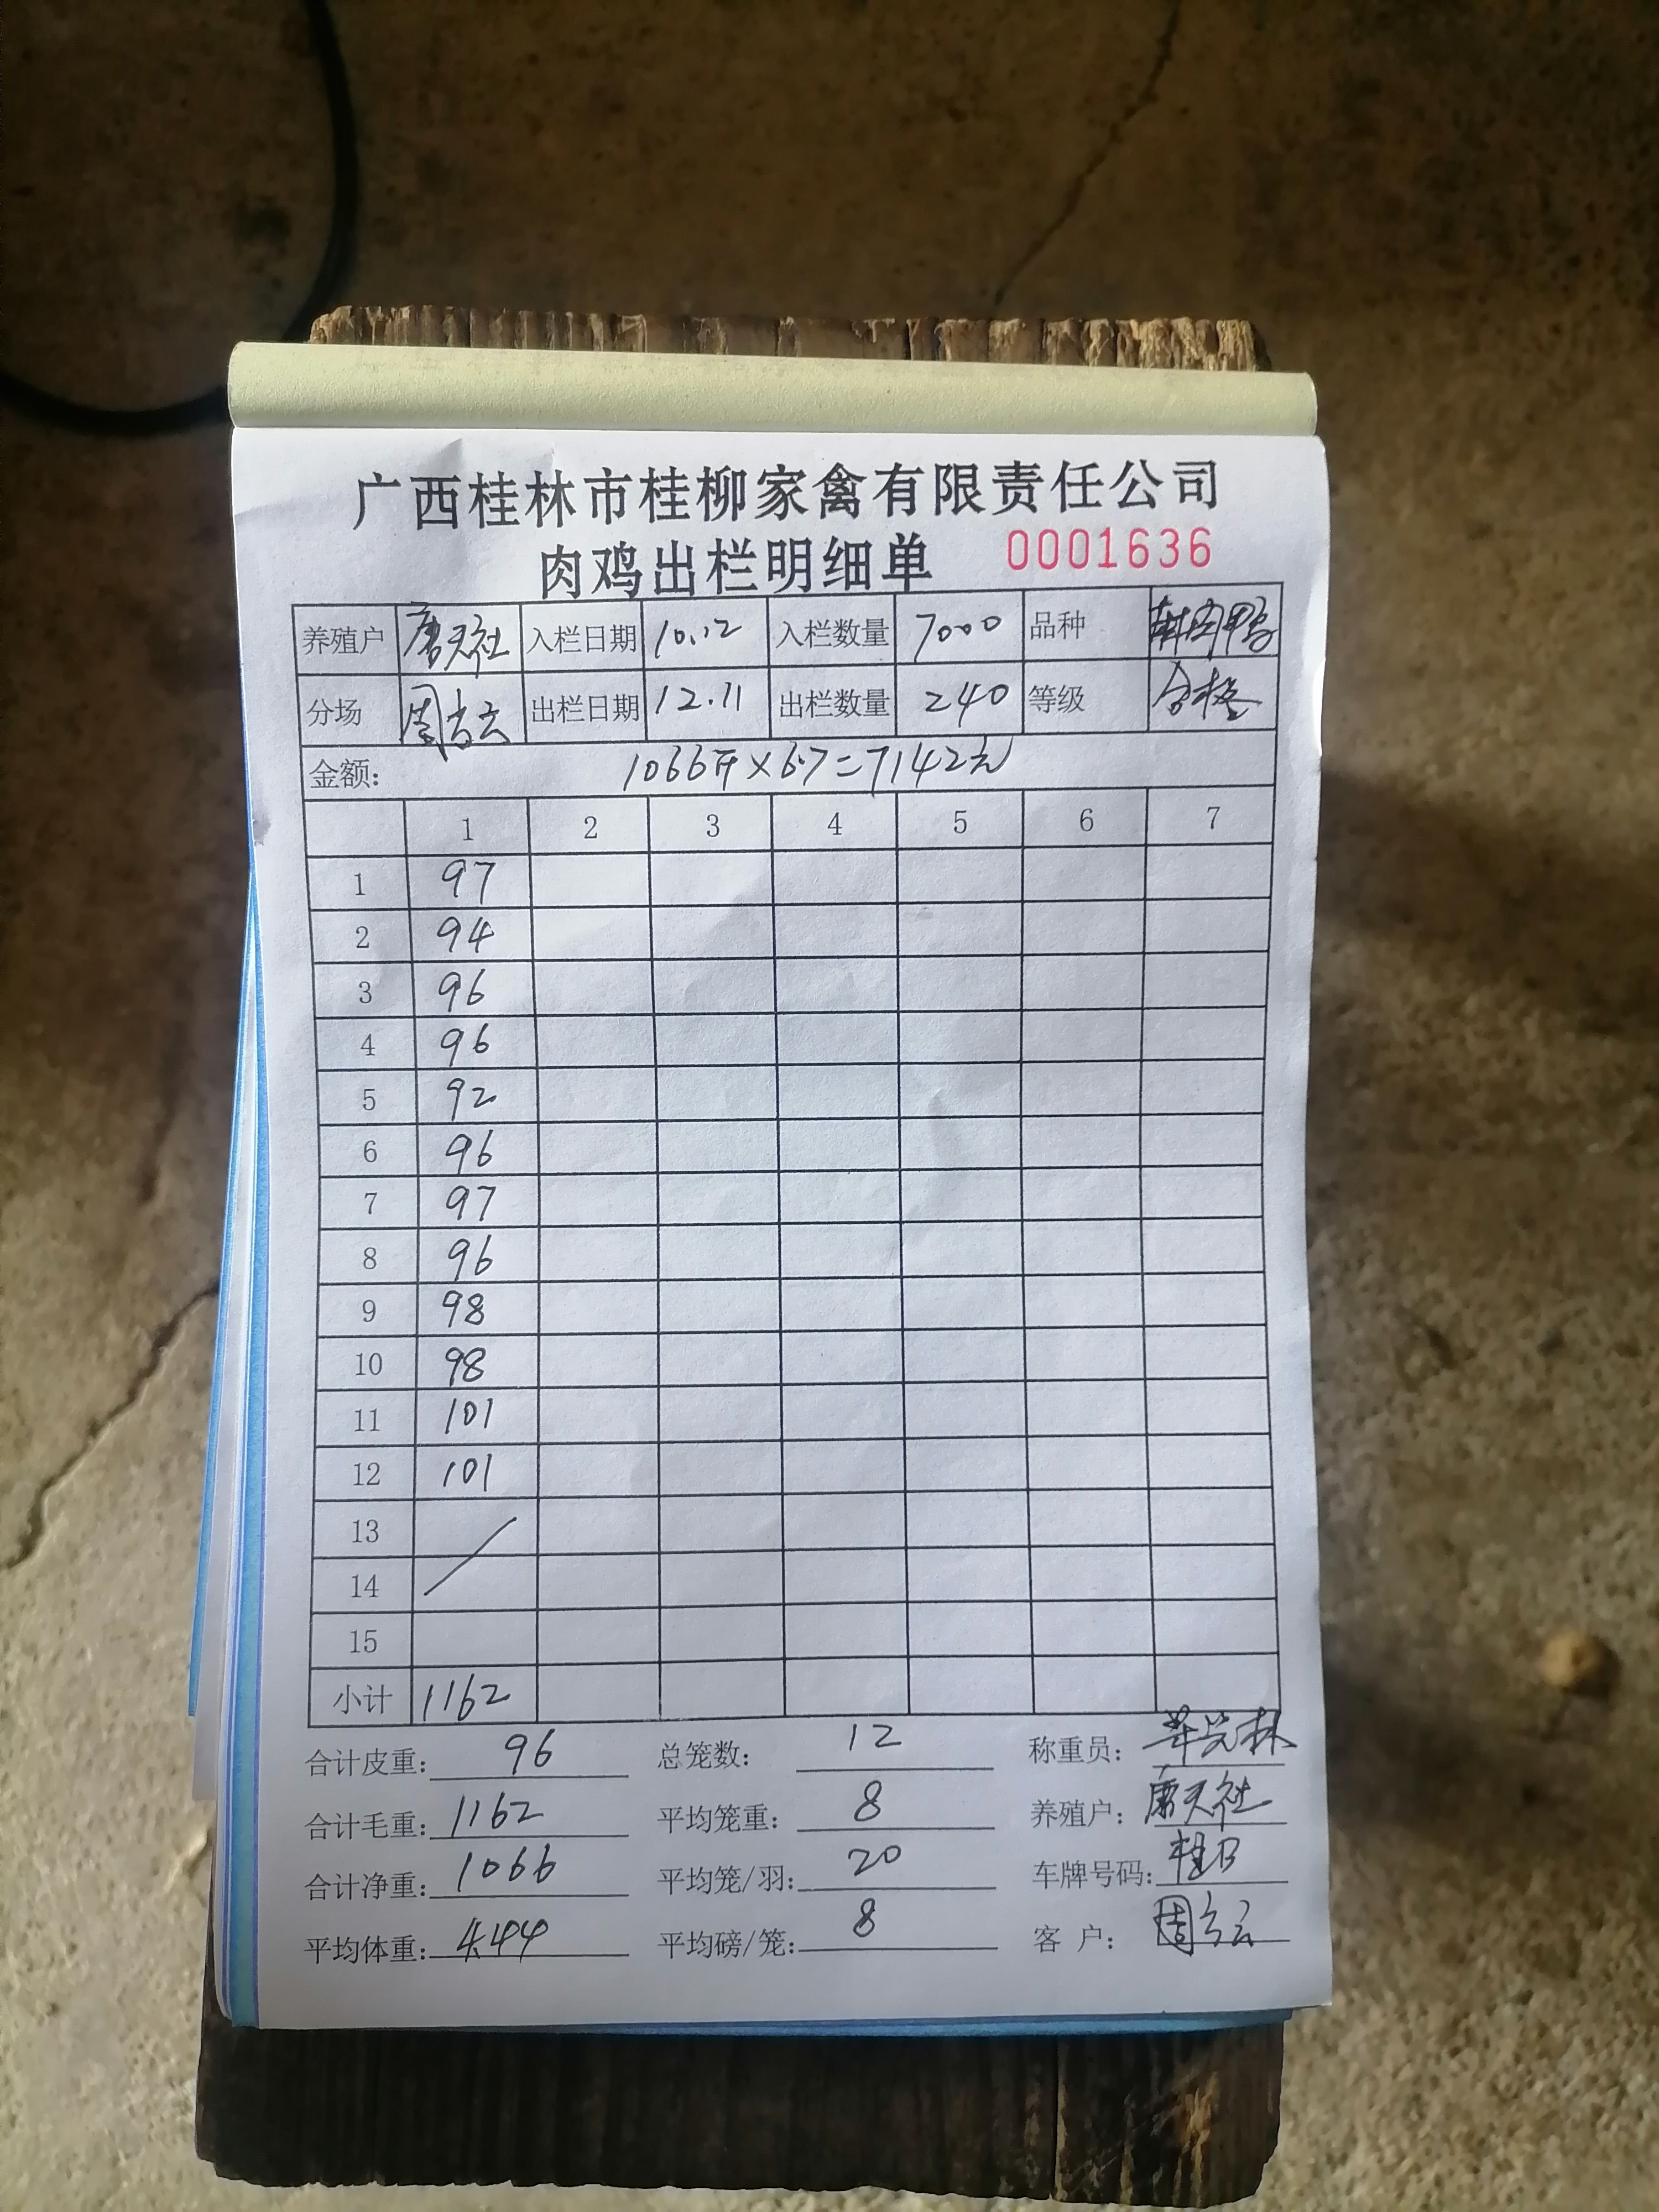 广西桂林市桂柳家禽有限责任公司
肉鸡出栏明细单 0001636
养殖户 唐天社 入栏日期 10.12 入栏数量 7000 品种
分场 周吉云 出栏日期 12.11 出栏数量 240 等级 合格
金额: 1066斤×6.7=7142元
1 2 3 4 5 6 7
1 97
2 94
3 96
4 96
5 92
6 96
7 97
8 96
9 98
10 98
11 101
12 101
13
14
15
小计 1162
合计皮重: 96 总笼数: 12 称重员:
合计毛重: 1162 平均笼重: 8 养殖户: 唐天社
合计净重: 1066 平均笼/羽: 20 车牌号码: 桂B
平均体重: 4.44 平均磅/笼: 8 客户: 周吉云